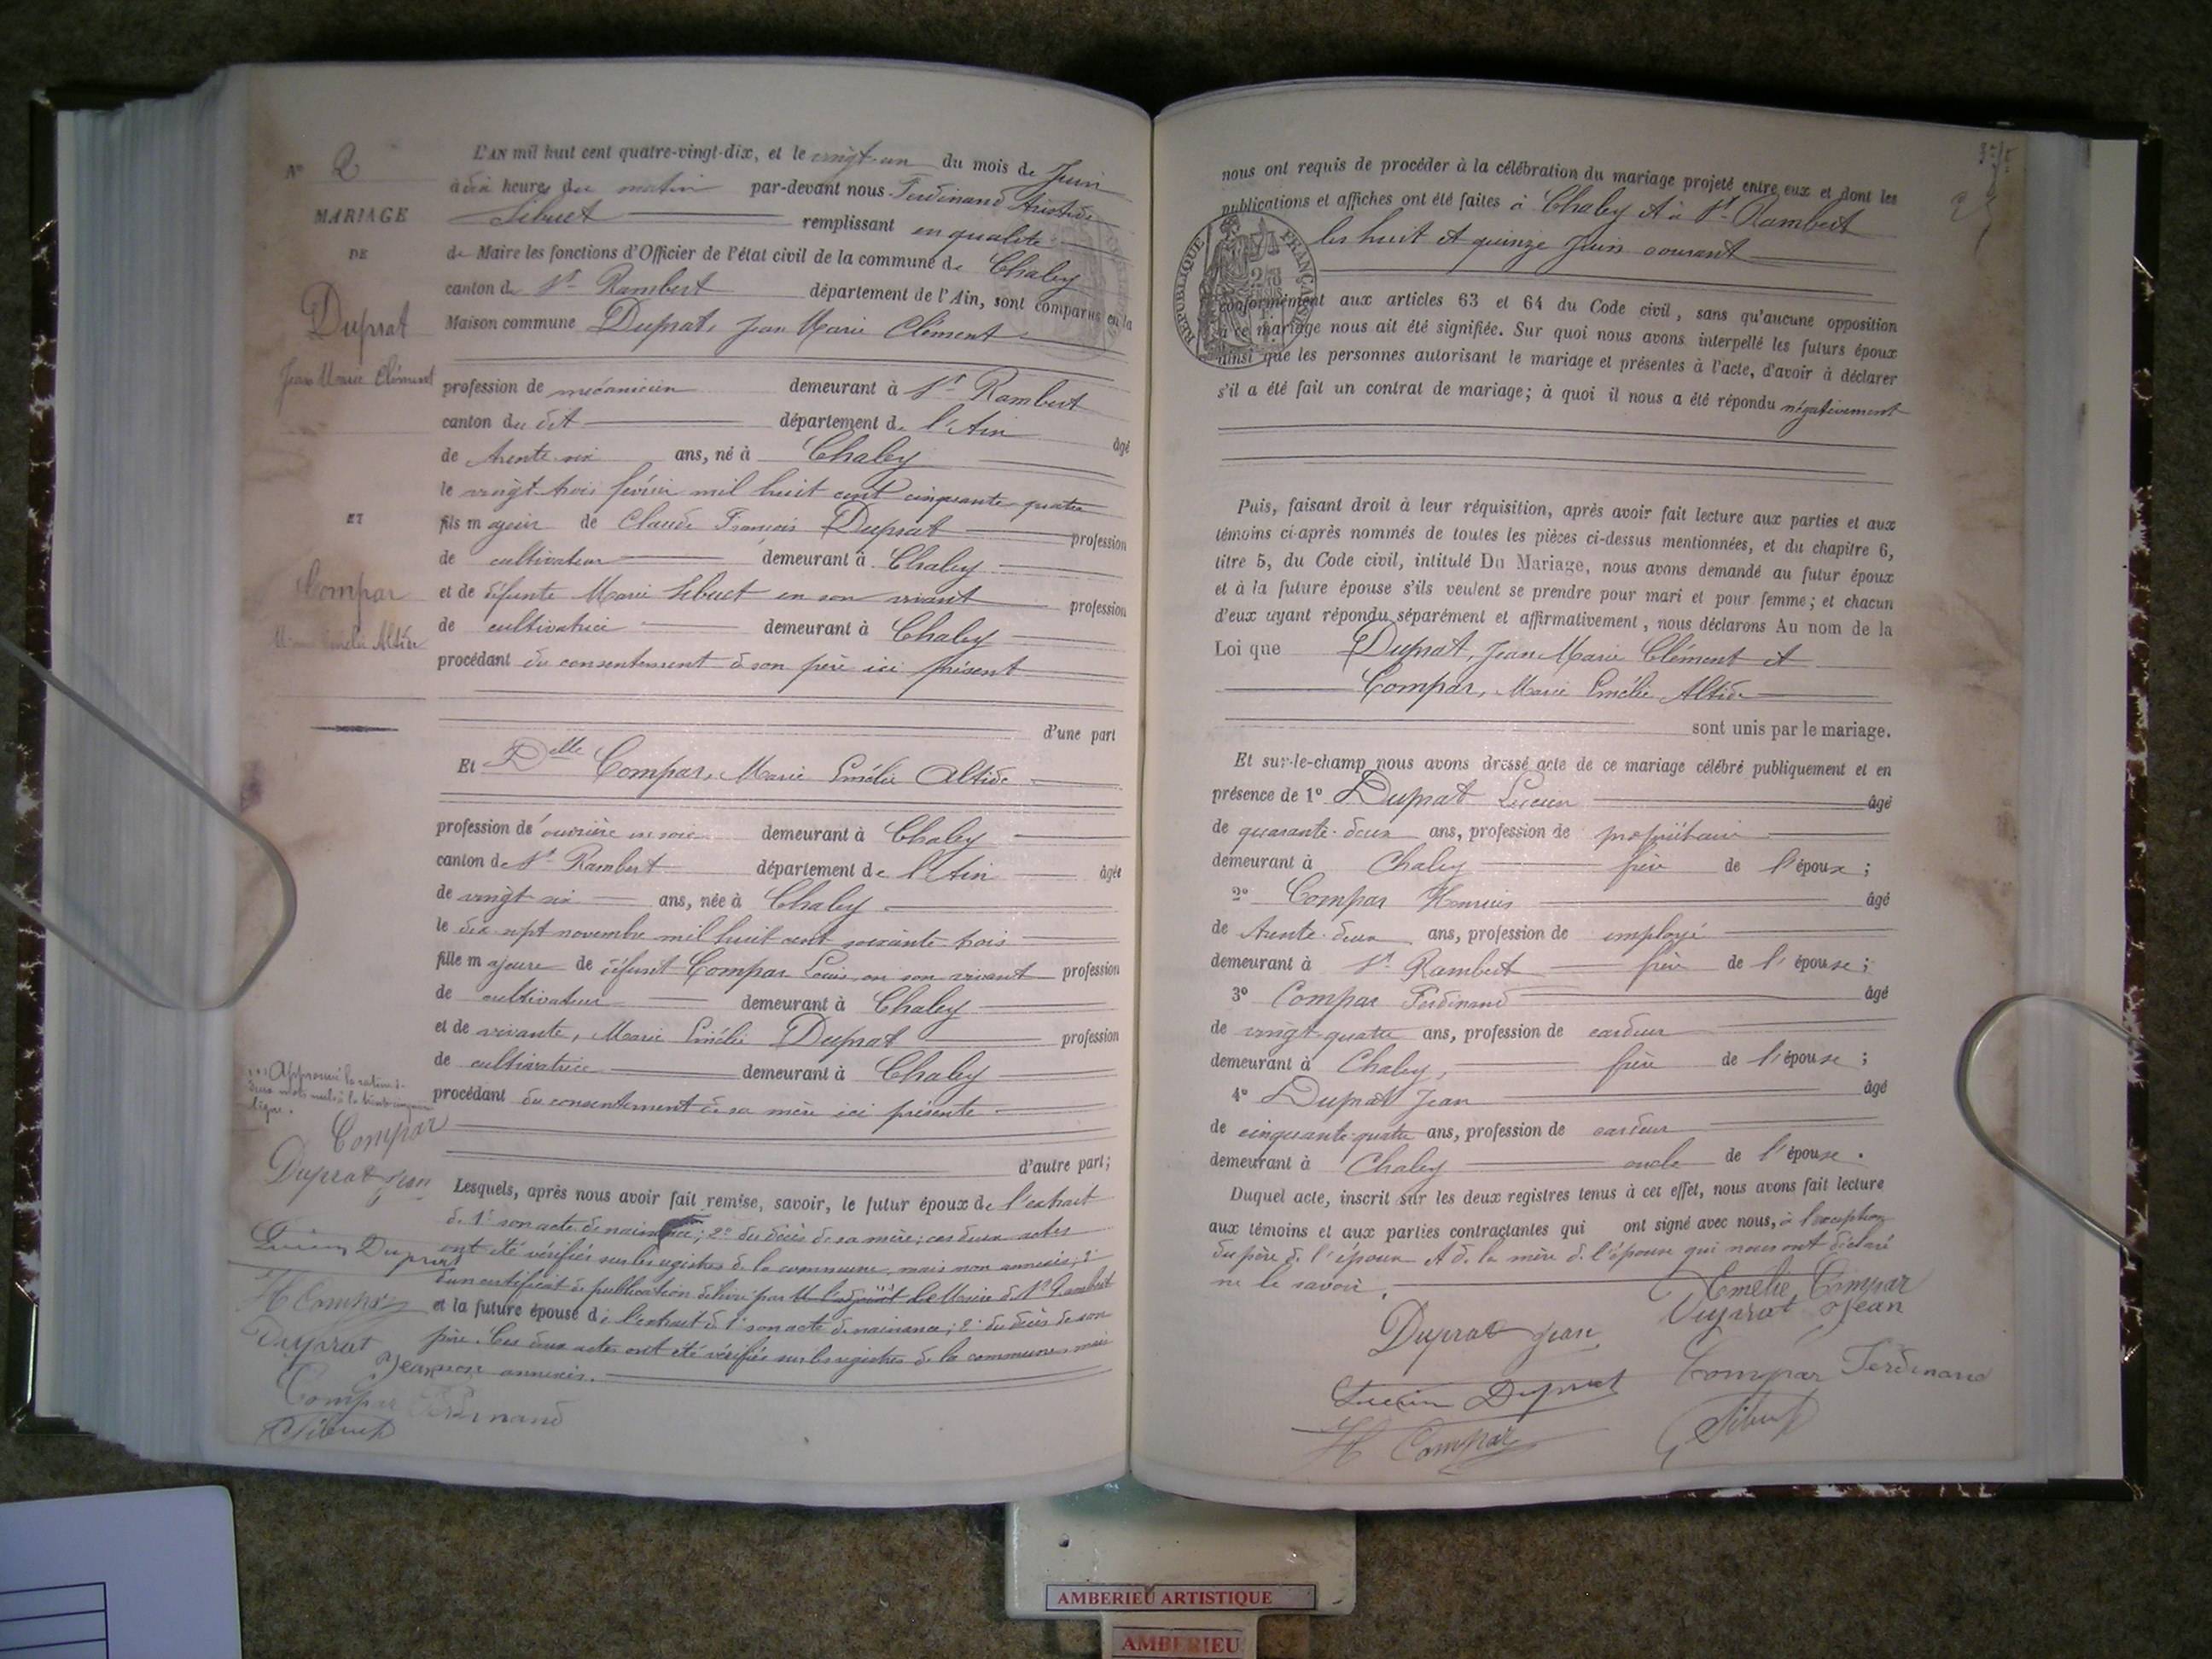 N° 2
MARIAGE
DE
Duprat
Jean Marie Clément
ET
Compar
Marie Emélie Altide
L'AN mil huit cent quatre-vingt-dix, et le vingt-un du mois de Juin
à dix heures du matin par-devant nous Ferdinand Aristide
Sibuet remplissant en qualité
de Maire les fonctions d'Officier de l'état civil de la commune de Chaley
canton de St Rambert département de l'Ain, sont comparus en la
Maison commune Duprat, Jean Marie Clément
profession de mécanicien demeurant à St Rambert
canton du dit département de l'Ain âgé
de trente six ans, né à Chaley
le vingt trois février mil huit cent cinquante quatre
fils majeur de Claude François Duprat profession
de cultivateur demeurant à Chaley
et de défunte Marie Sibuet en son vivant profession
de cultivatrice demeurant à Chaley
procédant du consentement de son père ici présent
d'une part
Et Delle Compar, Marie Emélie Altide
profession d'ouvrière en soie demeurant à Chaley
canton de St Rambert département de l'Ain âgée
de vingt six ans, née à Chaley
le dix-sept novembre mil huit cent soixante trois
fille majeure de défunt Compar Louis en son vivant profession
de cultivateur demeurant à Chaley
et de vivante, Marie Emélie Duprat profession
de cultivatrice demeurant à Chaley
procédant du consentement de sa mère ici présente
d'autre part;
Lesquels, après nous avoir fait remise, savoir, le futur époux de l'extrait
de 1° son acte de naissance; 2° du décès de sa mère; ces deux actes
ont été vérifiés sur les registres de la commune, mais non annexés; 3°
d'un certificat de publication délivré par M. l'adjoint le Maire de St Rambert
et la future épouse de l'extrait de 1° son acte de naissance; 2° du décès de son
père. Ces deux actes ont été vérifiés sur les registres de la commune mais
non annexés.
Approuvé la rature de
deux mots nuls à la
ligne.
Compar
Duprat Jean
Lucien Duprat
H Compar
Duprat Jean
Compar Ferdinand
Sibuet
nous ont requis de procéder à la célébration du mariage projeté entre eux et dont les
publications et affiches ont été faites à Chaley et à St Rambert
les huit et quinze Juin courant
RÉPUBLIQUE FRANÇAISE
conformément aux articles 63 et 64 du Code civil, sans qu'aucune opposition
à ce mariage nous ait été signifiée. Sur quoi nous avons interpellé les futurs époux
ainsi que les personnes autorisant le mariage et présentes à l'acte, d'avoir à déclarer
s'il a été fait un contrat de mariage; à quoi il nous a été répondu négativement
Puis, faisant droit à leur réquisition, après avoir fait lecture aux parties et aux
témoins ci-après nommés de toutes les pièces ci-dessus mentionnées, et du chapitre 6,
titre 5, du Code civil, intitulé Du Mariage, nous avons demandé au futur époux
et à la future épouse s'ils veulent se prendre pour mari et pour femme; et chacun
d'eux ayant répondu séparément et affirmativement, nous déclarons Au nom de la
Loi que Duprat, Jean Marie Clément et
Compar, Marie Emélie Altide
sont unis par le mariage.
Et sur-le-champ nous avons dressé acte de ce mariage célébré publiquement et en
présence de 1° Duprat Lucien âgé
de quarante-deux ans, profession de propriétaire
demeurant à Chaley frère de l'époux;
2° Compar Honoré âgé
de trente-deux ans, profession de employé
demeurant à St Rambert frère de l'épouse;
3° Compar Ferdinand âgé
de vingt-quatre ans, profession de cardeur
demeurant à Chaley, frère de l'épouse;
4° Duprat Jean âgé
de cinquante-quatre ans, profession de cardeur
demeurant à Chaley oncle de l'épouse.
Duquel acte, inscrit sur les deux registres tenus à cet effet, nous avons fait lecture
aux témoins et aux parties contractantes qui ont signé avec nous, à l'exception
du père de l'époux et de la mère de l'épouse qui nous ont déclaré
ne le savoir.
Emélie Compar
Duprat Jean
Duprat Jean
Compar Ferdinand
Lucien Duprat
H Compar
Sibuet
AMBERIEU ARTISTIQUE
AMBERIEU